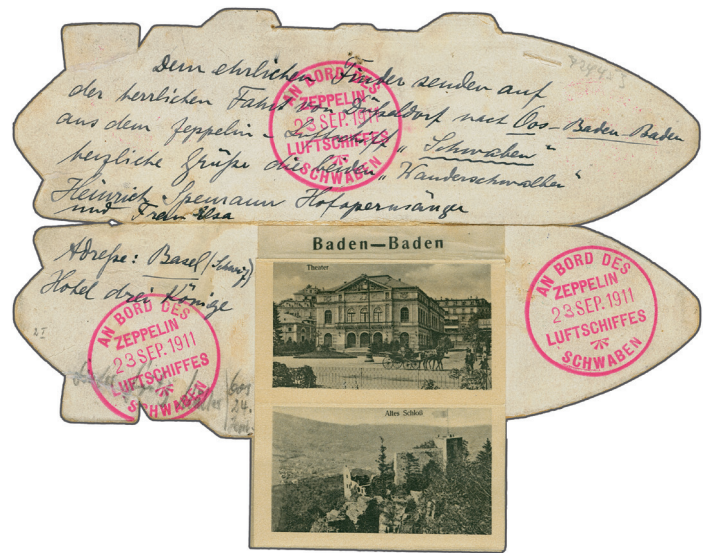 Dem ehrlichen Finder senden auf
der herrlichen Fahrt von Düßeldorf nach Oos-Baden-Baden
aus dem Zeppelin-Luftschiff „Schwaben“
herzliche Grüße die beiden „Wanderschwalben“
Heinrich Spemann Hofopernsänger
und Frau Elsa
AN BORD DES
ZEPPELIN
23 SEP. 1911
LUFTSCHIFFES
SCHWABEN
Adreße: Basel (Schweiz)
Hotel drei Könige
AN BORD DES
ZEPPELIN
23 SEP. 1911
LUFTSCHIFFES
SCHWABEN
Baden—Baden
Theater
Altes Schloß
AN BORD DES
ZEPPELIN
23 SEP. 1911
LUFTSCHIFFES
SCHWABEN